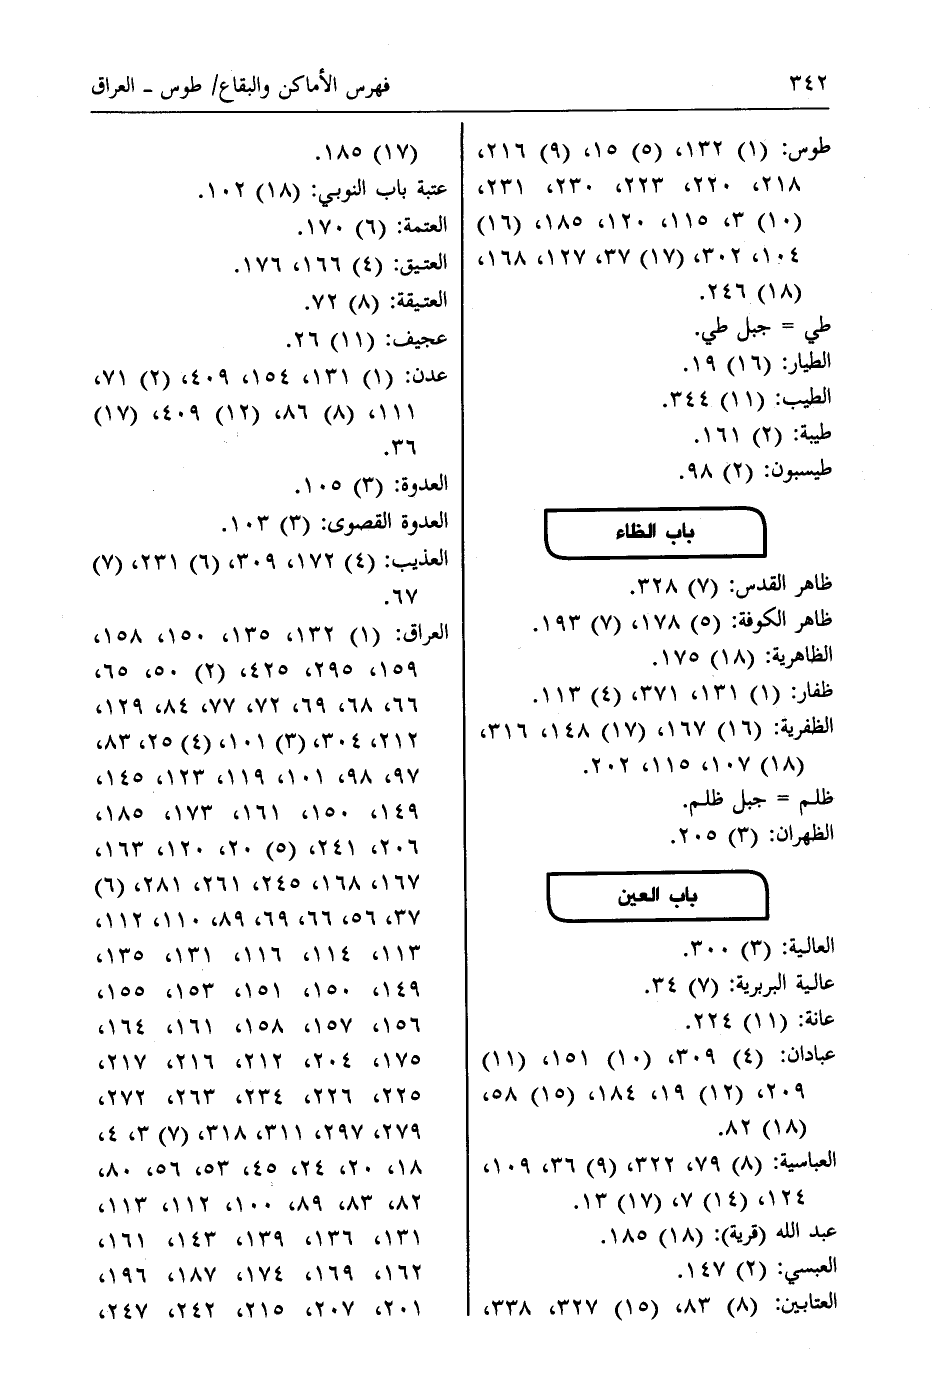 ٣٤٢
فهرس الأماكن والبقاع/ طوس ــ العراق
طوس: (١) ١٣٢، (٥) ١٥، (٩) ٢١٦،
٢١٨، ٢٢٠، ٢٢٣، ٢٣٠، ٢٣١،
(١٠) ٣، ١١٥، ١٢٠، ١٨٥، (١٦)
١٠٤، ٣٠٢، (١٧) ٣٧، ١٢٧، ١٦٨،
(١٨) ٢٤٦.
طي = جبل طي.
الطيار: (١٦) ١٩.
الطيب: (١١) ٣٤٤.
طيبة: (٢) ١٦١.
طيسبون: (٢) ٩٨.
باب الظاء
ظاهر القدس: (٧) ٣٢٨.
ظاهر الكوفة: (٥) ١٧٨، (٧) ١٩٣.
الظاهرية: (١٨) ١٧٥.
ظفار: (١) ١٣١، ٣٧١، (٤) ١١٣.
الظفرية: (١٦) ١٦٧، (١٧) ١٤٨، ٣١٦،
(١٨) ١٠٧، ١١٥، ٢٠٢.
ظلم = جبل ظلم.
الظهران: (٣) ٢٠٥.
باب العين
العالية: (٣) ٣٠٠.
عالية البربرية: (٧) ٣٤.
عانة: (١١) ٢٢٤.
عبادان: (٤) ٣٠٩، (١٠) ١٥١، (١١)
٢٠٩، (١٢) ١٩، ١٨٤، (١٥) ٥٨،
(١٨) ٨٢.
العباسية: (٨) ٧٩، ٣٢٢، (٩) ٣٦، ١٠٩،
١٢٤، (١٤) ٧، (١٧) ١٣.
عبد الله (قرية): (١٨) ١٨٥.
العبسي: (٢) ١٤٧.
العتابين: (٨) ٨٣، (١٥) ٣٢٧، ٣٣٨،
(١٧) ١٨٥.
عتبة باب النوبي: (١٨) ١٠٢.
العتمة: (٦) ١٧٠.
العتيق: (٤) ١٦٦، ١٧٦.
العتيقة: (٨) ٧٢.
عجيف: (١١) ٢٦.
عدن: (١) ١٣١، ١٥٤، ٤٠٩، (٢) ٧١،
١١١، (٨) ٨٦، (١٢) ٤٠٩، (١٧)
٣٦.
العدوة: (٣) ١٠٥.
العدوة القصوى: (٣) ١٠٣.
العذيب: (٤) ١٧٢، ٣٠٩، (٦) ٢٣١، (٧)
٦٧.
العراق: (١) ١٣٢، ١٣٥، ١٥٠، ١٥٨،
١٥٩، ٢٩٥، ٤٢٥، (٢) ٥٠، ٦٥،
٦٦، ٦٨، ٦٩، ٧٢، ٧٧، ٨٤، ١٢٩،
٢١٢، ٣٠٤، (٣) ١٠١، (٤) ٢٥، ٨٣،
٩٧، ٩٨، ١٠١، ١١٩، ١٢٣، ١٤٥،
١٤٩، ١٥٠، ١٦١، ١٧٣، ١٨٥،
٢٠٦، ٢٤١، (٥) ٢٠، ١٢٠، ١٦٣،
١٦٧، ١٦٨، ٢٤٥، ٢٦١، ٢٨١، (٦)
٣٧، ٥٦، ٦٦، ٦٩، ٨٩، ١١٠، ١١٢،
١١٣، ١١٤، ١١٦، ١٣١، ١٣٥،
١٤٩، ١٥٠، ١٥١، ١٥٣، ١٥٥،
١٥٦، ١٥٧، ١٥٨، ١٦١، ١٦٤،
١٧٥، ٢٠٤، ٢١٢، ٢١٦، ٢١٧،
٢٢٥، ٢٢٦، ٢٣٤، ٢٦٣، ٢٧٢،
٢٧٩، ٢٩٧، ٣١١، ٣١٨، (٧) ٣، ٤،
١٨، ٢٠، ٢٤، ٤٥، ٥٣، ٥٦، ٨٠،
٨٢، ٨٣، ٨٩، ١٠٠، ١١٢، ١١٣،
١٣١، ١٣٦، ١٣٩، ١٤٣، ١٦١،
١٦٢، ١٦٩، ١٧٤، ١٨٧، ١٩٦،
٢٠١، ٢٠٧، ٢١٥، ٢٤٢، ٢٤٧،